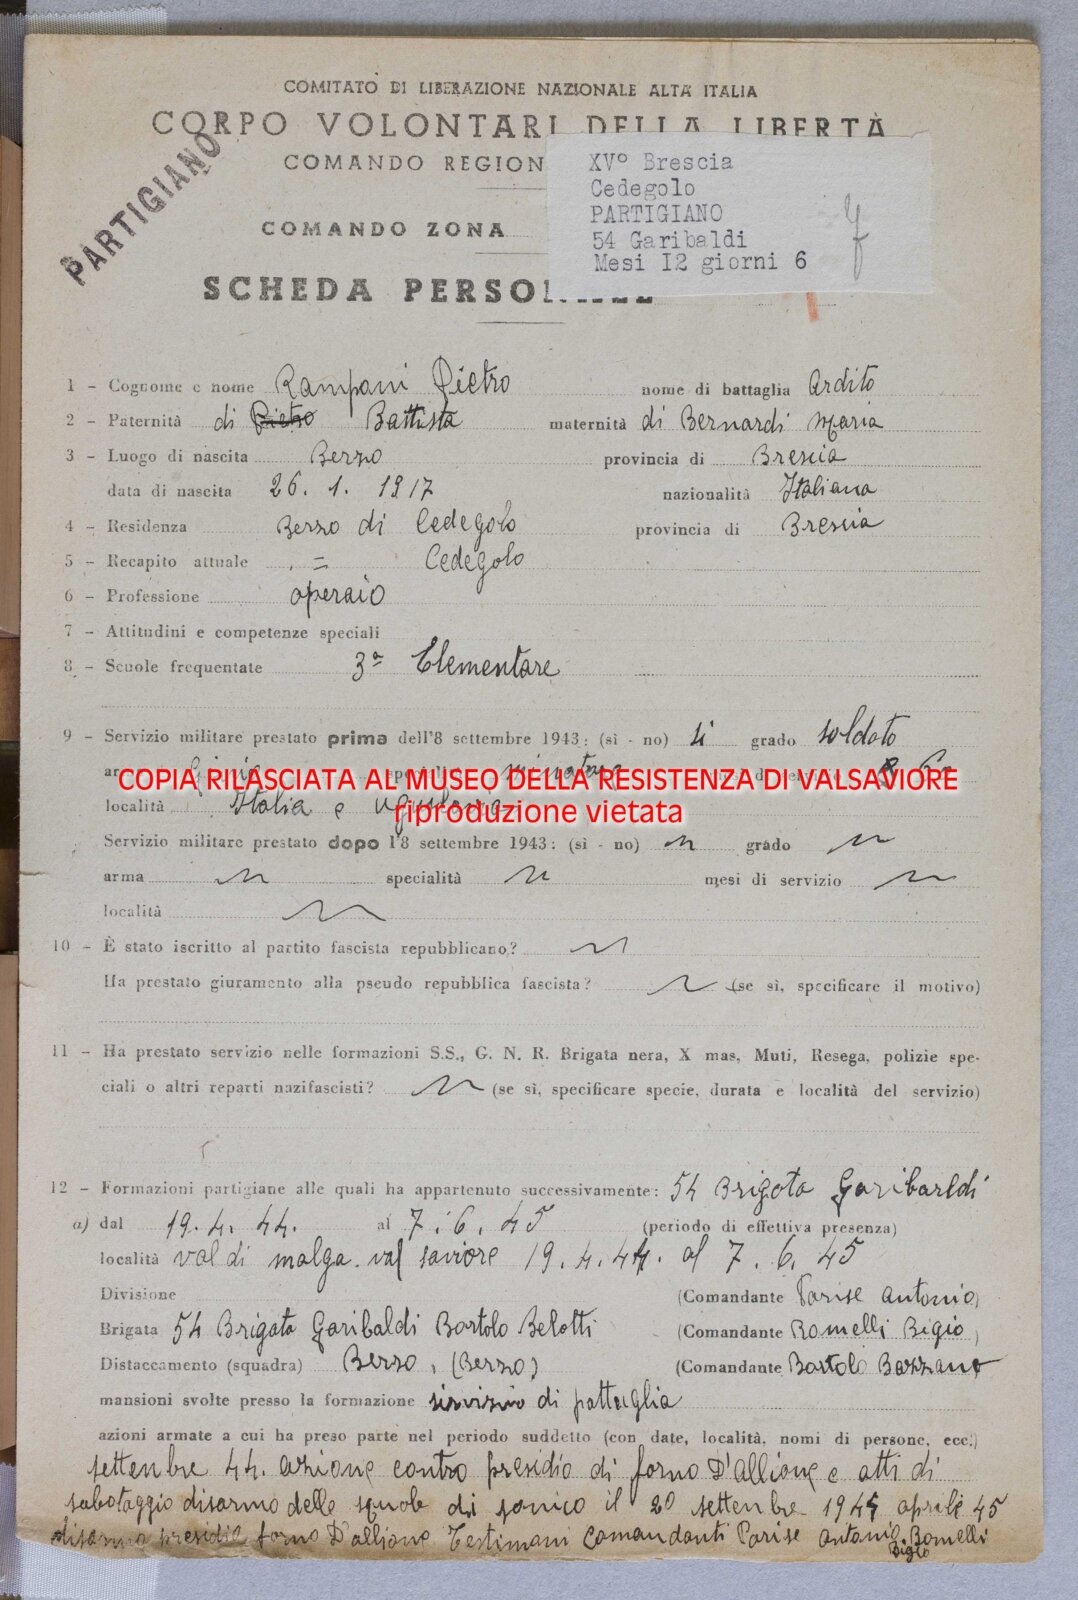 COMITATO DI LIBERAZIONE NAZIONALE ALTA ITALIA
CORPO VOLONTARI DELLA LIBERTÀ
COMANDO REGION
PARTIGIANO
XVº Brescia
Cedegolo
PARTIGIANO
54 Garibaldi
Mesi I2 giorni 6
COMANDO ZONA
SCHEDA PERSONALE
1 - Cognome e nome Rampani Pietro nome di battaglia Ardito
2 - Paternità di Pietro Battista maternità di Bernardi Maria
3 - Luogo di nascita Berzo provincia di Brescia
data di nascita 26. 1. 1917 nazionalità Italiana
4 - Residenza Berzo di Cedegolo provincia di Brescia
5 - Recapito attuale = Cedegolo
6 - Professione operaio
7 - Attitudini e competenze speciali
8 - Scuole frequentate 3ª Elementare
9 - Servizio militare prestato prima dell'8 settembre 1943: (sì - no) si grado soldato
COPIA RILASCIATA AL MUSEO DELLA RESISTENZA DI VALSAVIORE
località Italia e
riproduzione vietata
Servizio militare prestato dopo l'8 settembre 1943: (sì - no) grado
arma specialità mesi di servizio
località
10 - È stato iscritto al partito fascista repubblicano?
Ha prestato giuramento alla pseudo repubblica fascista? (se sì, specificare il motivo)
11 - Ha prestato servizio nelle formazioni S.S., G. N. R. Brigata nera, X mas, Muti, Resega, polizie spe-
ciali o altri reparti nazifascisti? (se sì, specificare specie, durata e località del servizio)
12 - Formazioni partigiane alle quali ha appartenuto successivamente: 54 Brigata Garibaldi
a) dal 19. 4. 44. al 7. 6. 45 (periodo di effettiva presenza)
località val di malga. val saviore 19. 4. 44. al 7. 6. 45
Divisione (Comandante Parise Antonio)
Brigata 54 Brigata Garibaldi Bortolo Belotti (Comandante Romelli Bigio)
Distaccamento (squadra) Berzo, (Berzo) (Comandante Bortolo Bazzana
mansioni svolte presso la formazione servizio di pattuglia
azioni armate a cui ha preso parte nel periodo suddetto (con date, località, nomi di persone, ecc.)
settenbre 44. azione contro presidio di forno D'allione e atti di
sabotaggio disarmo delle di sonico il 20 settenbre 1944 aprile 45
disarmo presidio forno D'allione Testimani Comandanti Parise Antonio Romelli
Bigio